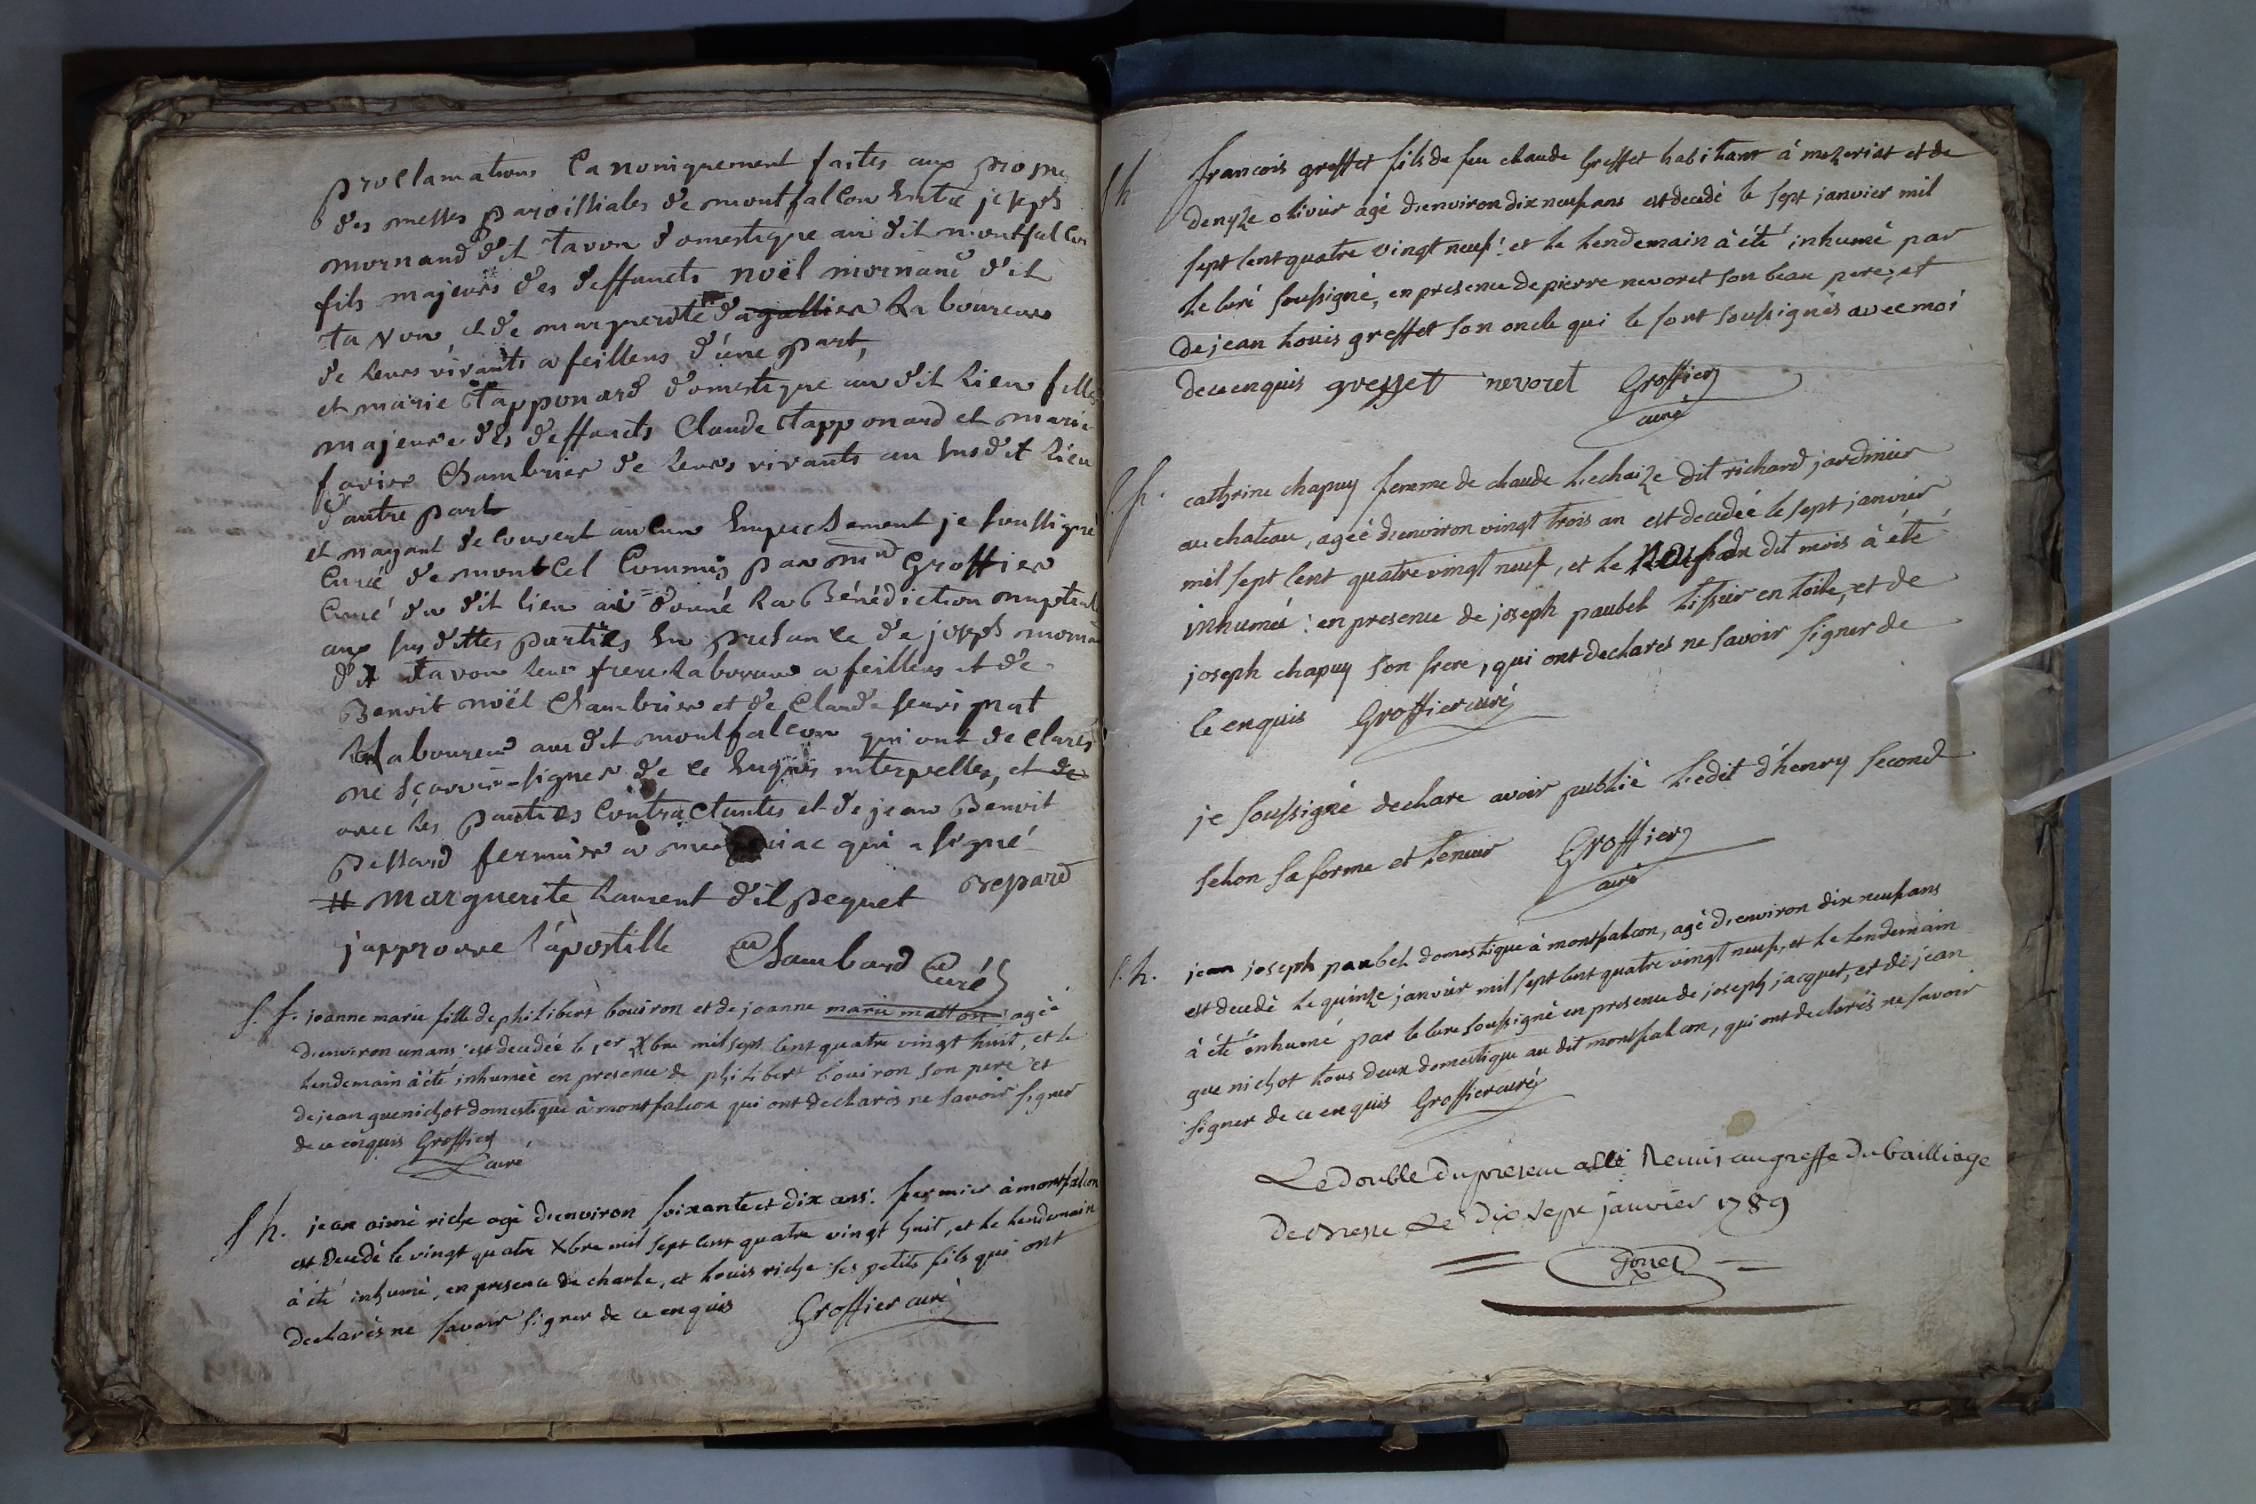 proclamations Canoniquement faites aux prones
des messes paroissiales de montfalcon Entre joseph
mornand dit tavon domestique au dit montfalcon
fils majeurs des deffuncts noël mornand dit
tavon, et de marguerite dagallier Laboureurs
de leurs vivants a feillens d'une part,
et marie tapponard domestique au dit Lieu fille
majeure des deffuncts Claude tapponard et marie
favier Chambrier de leurs vivants au susdit Lieu
d'autre part
et nayant decouvert aucun Empechement je soussigné
Curé de montcel Commis par mr Groffier
Curé du dit lieu ai donné La Bénédiction nuptial
aux susdittes parties En presence de joseph morna
dit tavon leur frere Laboureur a feillens et de
Benoit noël Chambrier et de Claude
Laboureur au dit montfalcon qui ont declarés
ne sçavoir signer de ce Enquis interpelles, et de
avec les parties Contractantes et de jean Benoit
fermier a qui a signé
# marguerite Laurent dit pequet Bepard
j'approuve l'apostille Chambard Curé
s. f. jeanne marie fille de philibert bouiron et de joanne marie matton, agée
d'environ un ans est decedée le 1er Xbre mil sept cent quatre vingt huit, et le
lendemain à été inhumée en presence de philibert bouiron son pere et
de jean guenichot domestique à montfalcon qui ont declarés ne savoir signer
de ce enquis Groffier
curé
s h. jean aimé riche agé d'environ soixante et dix ans fermier à montfalcon
est decedé le vingt quatre Xbre mil sept cent quatre vingt huit, et le lendemain
à été inhumé, en presence de charle, et louis riche ses petits fils qui ont
declarés ne savoir signer de ce enquis Groffier curé
s h francois greffet fils de feu claude Greffet habitant à mezeriat et de
denyze olivier agé d'environ dix neuf ans est decedé le sept janvier mil
sept cent quatre vingt neuf et le lendemain à été inhumé par
le curé soussigné, en presence de pierre nevoret son beau pere, et
de jean louis greffet son oncle qui se sont soussignés avec moi
de ce enquis greffet nevoret Groffier
curé
s. f. cathrine chapuy femme de claude Lechaize dit richard jardinier
au chateau, agée d'environ vingt trois an est decedée le sept janvier
mil sept cent quatre vingt neuf, et le neuf du dit mois à été
inhumée: en presence de joseph paubel tissier en toile, et de
joseph chapuy son frere, qui ont declarés ne savoir signer de
ce enquis Groffier curé
je soussigné declare avoir publié l'edit d'henry second
selon sa forme et teneur Groffier
curé
s. h. jean joseph paubel domestique à montfalcon, agé d'environ dix neuf ans
est decedé le quinze janvier mil sept cent quatre vingt neuf, et le lendemain
à été inhumé par le curé soussigné en presence de joseph jacquet, et de jean
guenichot tous deux domestique au dit montfalcon, qui ont declarés ne savoir
signer de ce enquis Groffier curé
Le Double du present a été Remis au greffe du bailliage
de Bresse Le dix sept janvier 1789